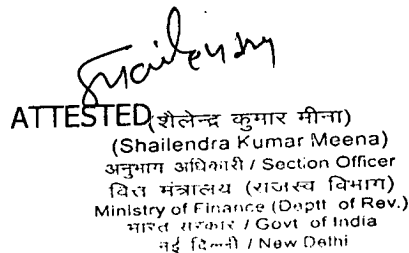 Shailendra
ATTESTED (शैलेन्द्र कुमार मीना)
(Shailendra Kumar Meena)
अनुभाग अधिकारी / Section Officer
वित्त मंत्रालय (राजस्व विभाग)
Ministry of Finance (Deptt of Rev.)
भारत सरकार / Govt of India
नई दिल्ली / New Delhi